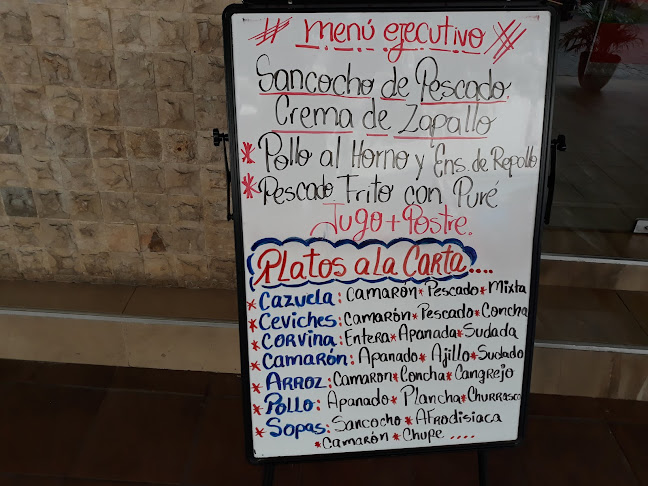 menú ejecutivo
Sancocho de Pescado
Crema de Zapallo
* Pollo al Horno y Ens. de Repollo
* Pescado Frito con Puré
Jugo + Postre.
Platos a la Carta....
* Cazuela: Camarón * Pescado * Mixta
* Ceviches: Camarón * Pescado * Concha
* Corvina: Entera * Apanada * Sudada
* Camarón: Apanado * Ajillo * Sudado
* Arroz: Camaron * Concha * Cangrejo
* Pollo: Apanado * Plancha * Churrasco
* Sopas: Sancocho * Afrodisiaca
* Camarón * Chupe ....